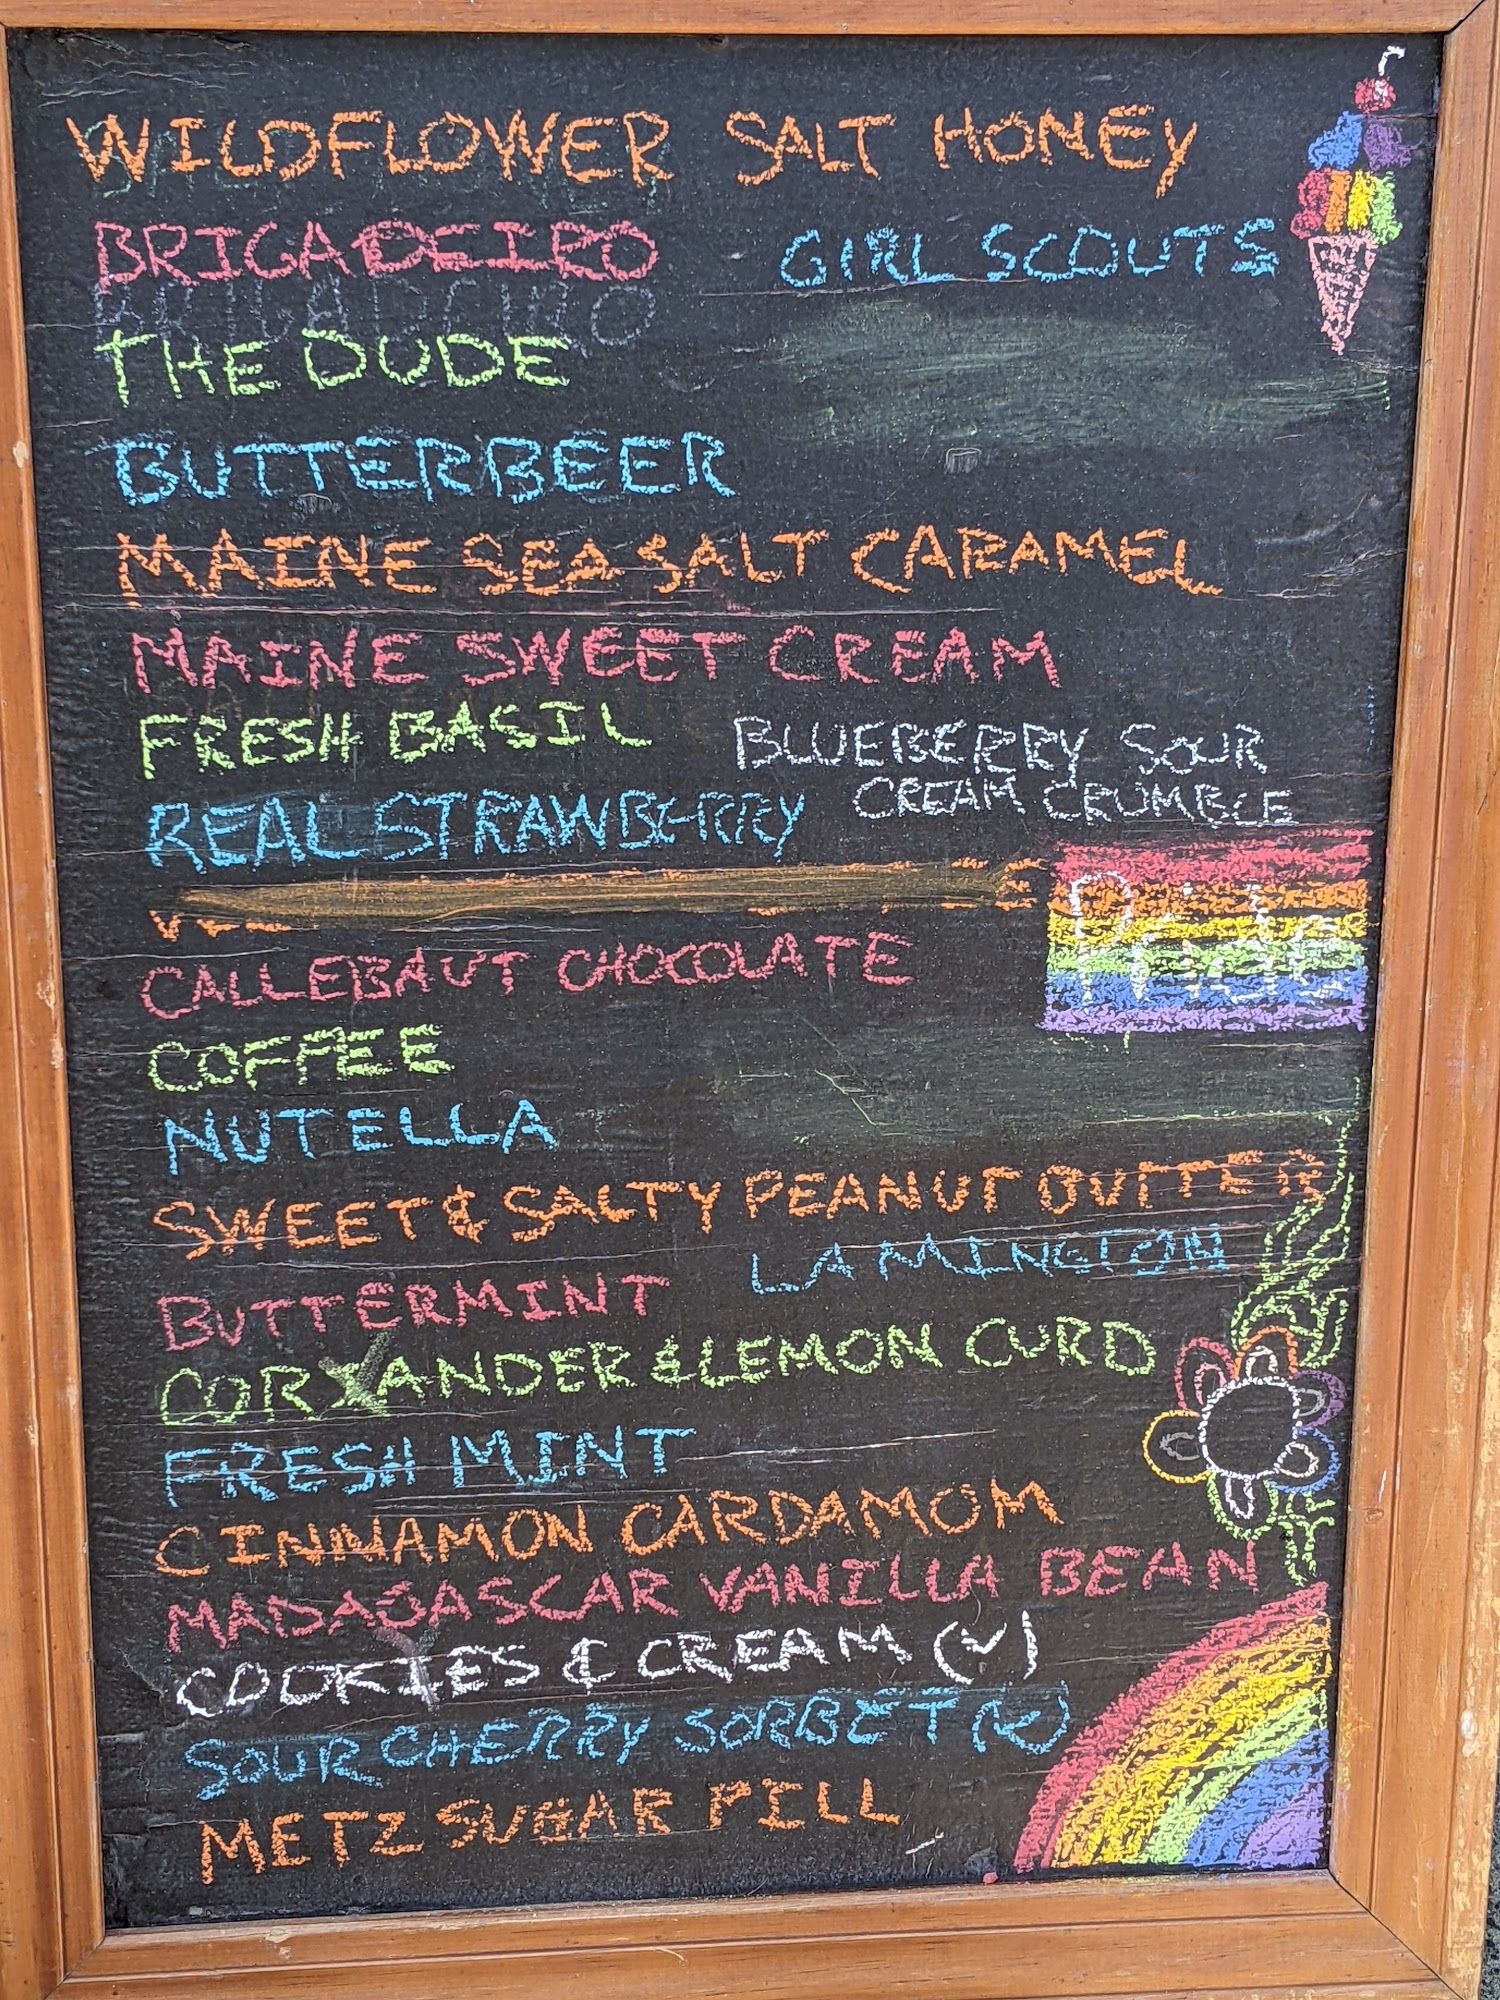 WILDFLOWER SALT HONEY
BRIGADEIRO
GIRL SCOUTS
BRIGADEIRO
THE DUDE
BUTTERBEER
MAINE SEA SALT CARAMEL
MAINE SWEET CREAM
FRESH BASIL
BLUEBERRY SOUR
CREAM CRUMBLE
REAL STRAWBERRY
Pride
CALLEBAUT CHOCOLATE
COFFEE
NUTELLA
SWEET & SALTY PEANUT BUTTER
LAMINGTON
BUTTERMINT
CORIANDER & LEMON CURD
FRESH MINT
CINNAMON CARDAMOM
MADAGASCAR VANILLA BEAN
COOKIES & CREAM (V)
SOUR CHERRY SORBET (V)
METZ SUGAR PILL